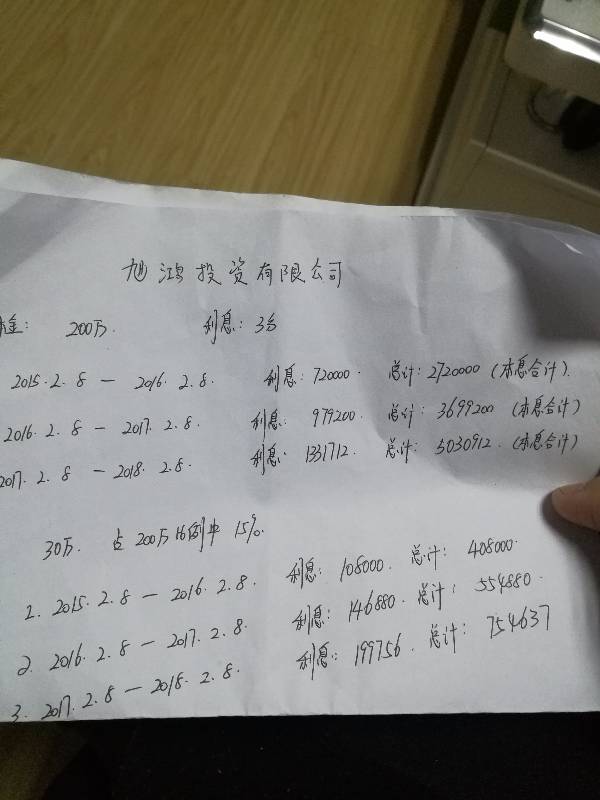 旭鸿投资有限公司
本金: 200万. 利息: 3分
2015. 2. 8 — 2016. 2. 8. 利息: 720000. 总计: 2720000 (本息合计).
2016. 2. 8 — 2017. 2. 8. 利息: 979200. 总计: 3699200 (本息合计)
2017. 2. 8 — 2018. 2. 8. 利息: 1331712. 总计: 5030912. (本息合计)
30万. 占200万比例中 15%.
1. 2015. 2. 8 — 2016. 2. 8. 利息: 108000. 总计: 408000.
2. 2016. 2. 8 — 2017. 2. 8. 利息: 146880. 总计: 554880.
3. 2017. 2. 8 — 2018. 2. 8. 利息: 199756. 总计: 754637